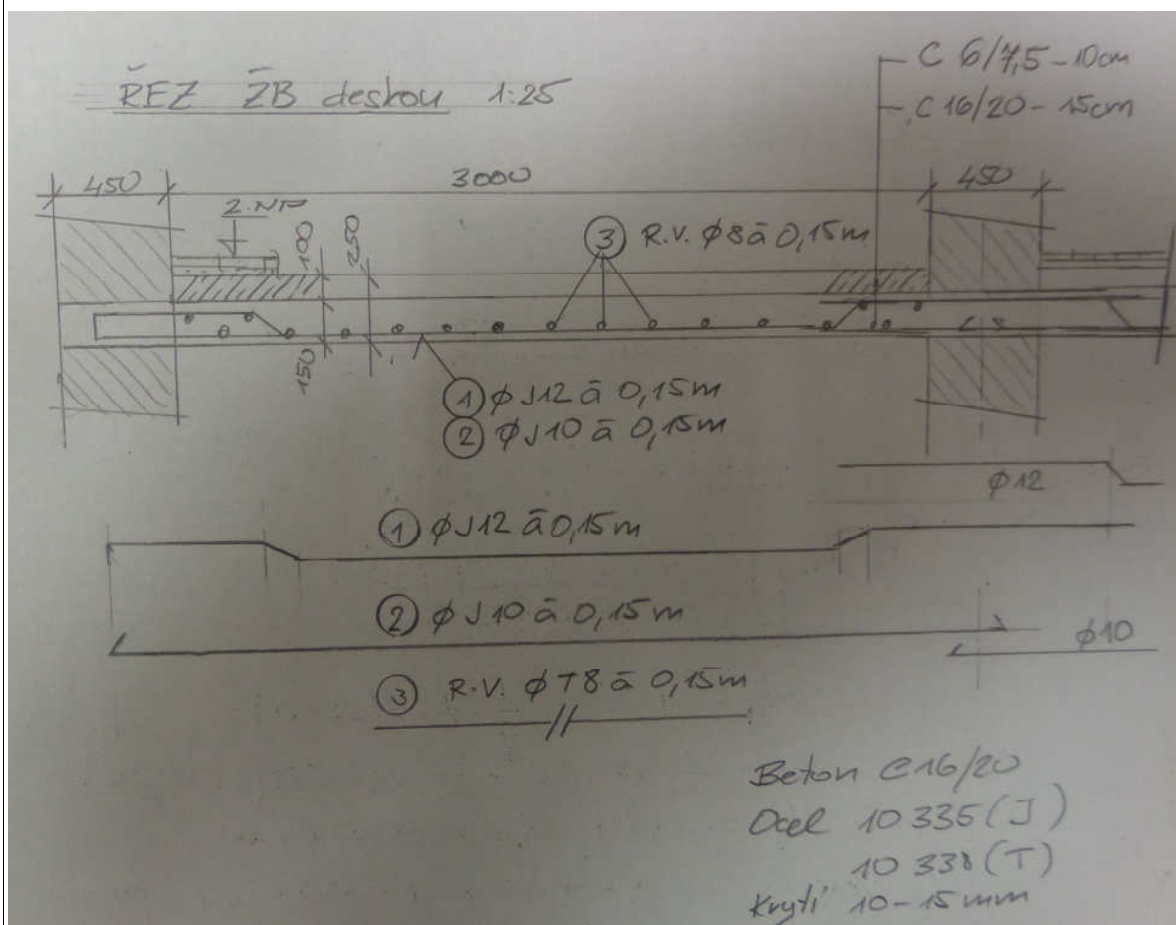 ŘEZ ŽB deskou 1:25
C 6/7,5 - 10cm
C 16/20 - 15cm
450
3000
450
2.NP
100
250
③ R.V. ϕ8 ā 0,15m
150
① ϕJ12 ā 0,15m
② ϕJ10 ā 0,15m
ϕ12
① ϕJ12 ā 0,15m
② ϕJ10 ā 0,15m
ϕ10
③ R.V. ϕT8 ā 0,15m
Beton C16/20
Ocel 10 335 (J)
10 338 (T)
Krytí 10-15mm